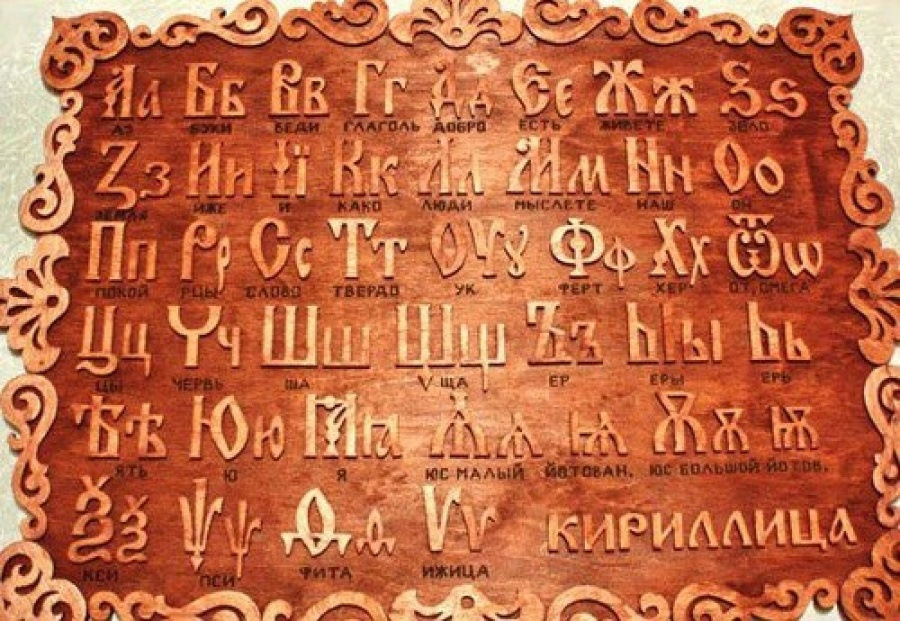 Аа Бб Вв Гг Дд Єє Жж Ѕѕ
АЗ БУКИ ВЕДИ ГЛАГОЛЬ ДОБРО ЕСТЬ ЖИВЕТЕ ЗЕЛО
Зз Ии Її Кк Лл Мм Нн Оо
ЗЕМЛЯ ИЖЕ И КАКО ЛЮДИ МЫСЛЕТЕ НАШ ОН
Пп Рр Сс Тт Оу ȣ Фф Хх Ѿ ѡ
ПОКОЙ РЦЫ СЛОВО ТВЕРДО УК ФЕРТ ХЕР ОТ, ОМЕГА
Цц Чч Шш Щщ Ъъ Ыы Ьь
ЦЫ ЧЕРВЬ ША ЩА ЕР ЕРЫ ЕРЬ
Ѣѣ Юю Ꙗꙗ Ѧѧ ѩ Ѫѫ ѭ
ЯТЬ Ю Я ЮС МАЛЫЙ ЙОТОВАН. ЮС БОЛЬШОЙ ЙОТОВ.
Ѯѯ Ѱѱ Ѳѳ Ѵѵ КИРИЛЛИЦА
КСИ ПСИ ФИТА ИЖИЦА